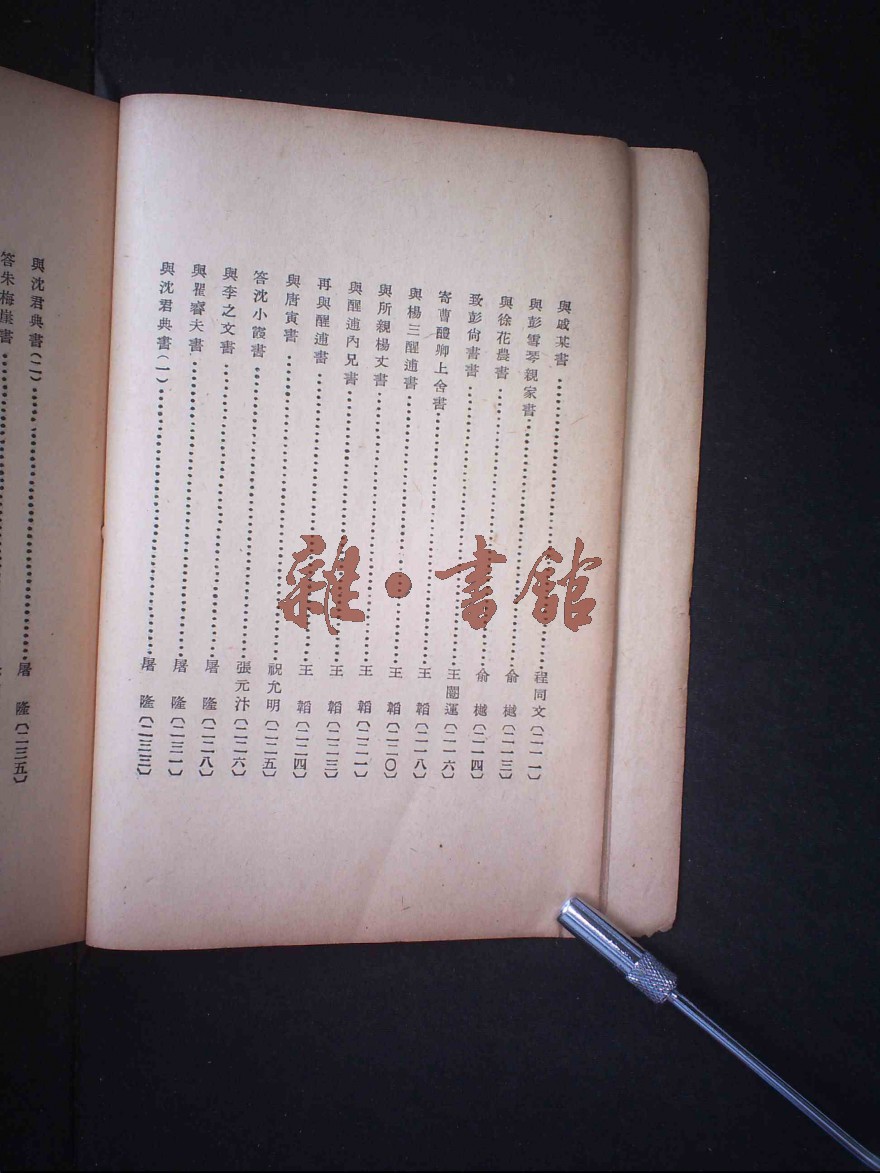 與戚某書……程同文〔二一一〕
與彭雪琴親家書……俞樾〔二一三〕
與徐花農書……俞樾〔二一四〕
致彭尙書書……王闓運〔二一六〕
寄曹醴卿上舍書……王韜〔二一八〕
與楊三醒逋書……王韜〔二二〇〕
與所親楊丈書……王韜〔二二一〕
與醒逋內兄書……王韜〔二二三〕
再與醒逋書……王韜〔二二四〕
與唐寅書……祝允明〔二二五〕
答沈小霞書……張元汴〔二二六〕
與李之文書……屠隆〔二二八〕
與瞿睿夫書……屠隆〔二三一〕
與沈君典書(一)……屠隆〔二三三〕
與沈君典書(二)……屠隆〔二三五〕
答朱梅崖書……
雜·書館